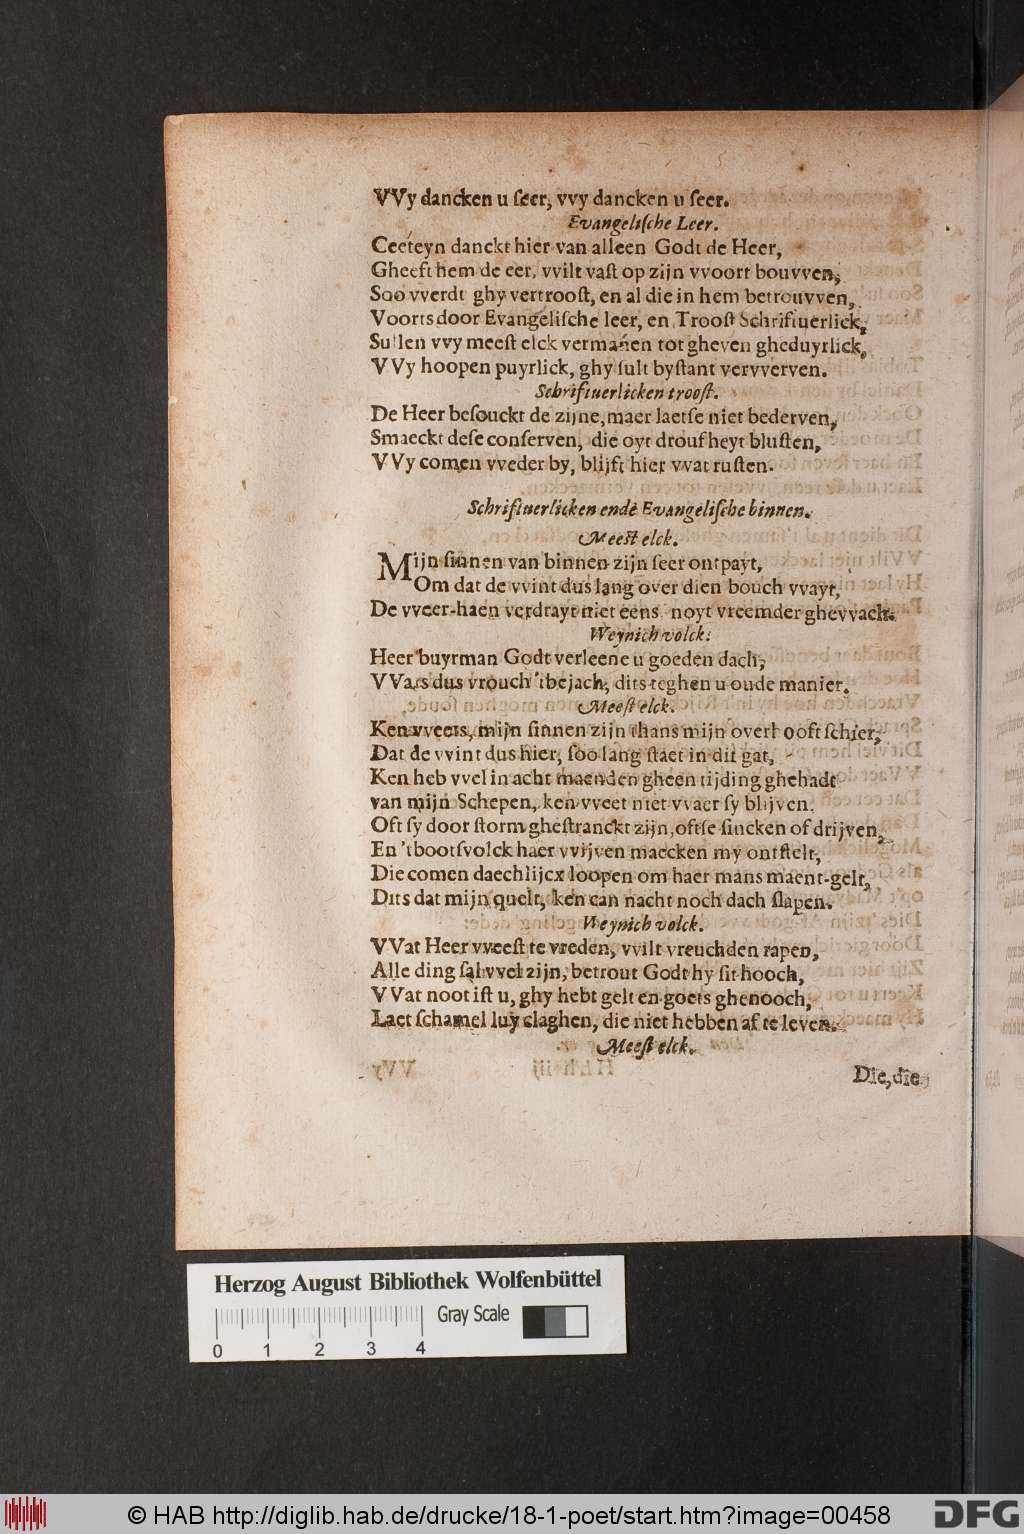 VVy dancken u ſeer, vvy dancken u ſeer.
Evangeliſche Leer.
Ceeteyn danckt hier van alleen Godt de Heer,
Gheeft hem de eer, vvilt vaſt op zijn vvoort bouvven,
Soo vverdt ghy vertrooſt, en al die in hem betrouvven,
Voorts door Evangeliſche leer, en Trooſt Schriftuerlick,
Sullen vvy meeſt elck vermanen tot gheven gheduyrlick,
VVy hoopen puyrlick, ghy ſult byſtant vervverven.
Schriftuerlicken trooſt.
De Heer beſouckt de zijne, maer laetſe niet bederven,
Smaeckt deſe conſerven, die oyt droufheyt bluſten,
VVy comen vveder by, blijft hier vvat ruſten.
Schriftuerlicken ende Evangeliſche binnen.
Meeſt elck.
Mijn ſinnen van binnen zijn ſeer ontpayt,
Om dat de vvint dus lang over dien bouch vvayt,
De vveer-haen verdrayt niet eens noyt vreemder ghevvach.
Weynich volck.
Heer buyrman Godt verleene u goeden dach,
VVats dus vrouch 'tbejach, dits teghen u oude manier.
Meeſt elck.
Ken vveets, mijn ſinnen zijn thans mijn overhooft ſchier,
Dat de vvint dus hier, ſoo lang ſtaet in dit gat,
Ken heb vvel in acht maenden gheen tijding ghehadt
van mijn Schepen, ken vveet niet vvaer ſy blijven.
Oft ſy door ſtorm gheſtranckt zijn, oftſe ſincken of drijven,
En 'tbootſvolck haer vvijven maecken my ontſtelt,
Die comen daechlijcx loopen om haer mans maent-gelt,
Dits dat mijn quelt, ken can nacht noch dach ſlapen.
Weynich volck.
VVat Heer vveeſt te vreden, vvilt vreuchden rapen,
Alle ding ſal vvel zijn, betrout Godt hy ſit hooch,
VVat noot iſt u, ghy hebt gelt en goets ghenooch,
Laet ſchamel luy claghen, die niet hebben af te leven.
Meeſt elck.
Die, die
Herzog August Bibliothek Wolfenbüttel
Gray Scale
0 1 2 3 4
© HAB http://diglib.hab.de/drucke/18-1-poet/start.htm?image=00458
DFG